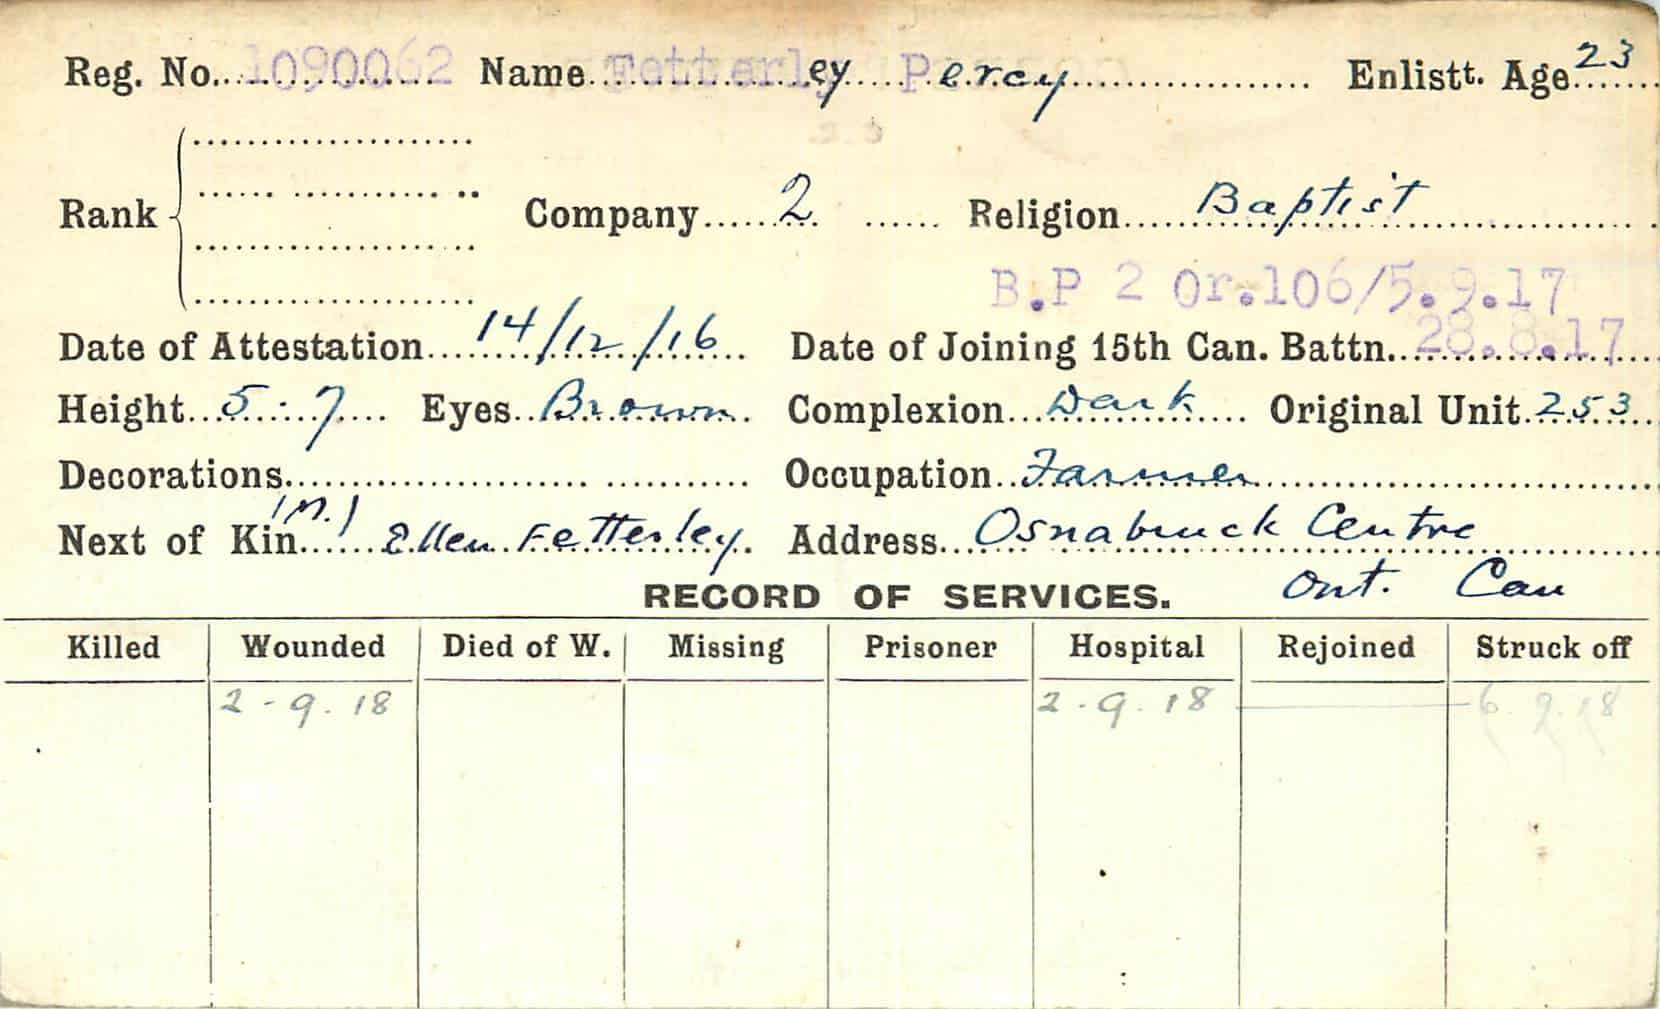 Reg. No. 1090062 Name Fetterley Percy Enlistt. Age 23
Rank Company 2 Religion Baptist
B.P 2 Or.106/5.9.17
Date of Attestation 14/12/16 Date of Joining 15th Can. Battn. 28.8.17
Height 5-7 Eyes Brown Complexion Dark Original Unit 253
Decorations Occupation Farmer
(M.)
Next of Kin Ellen Fetterley Address Osnabruck Centre
RECORD OF SERVICES. Ont. Can
Killed Wounded Died of W. Missing Prisoner Hospital Rejoined Struck off
2-9.18 2.9.18 6.9.18